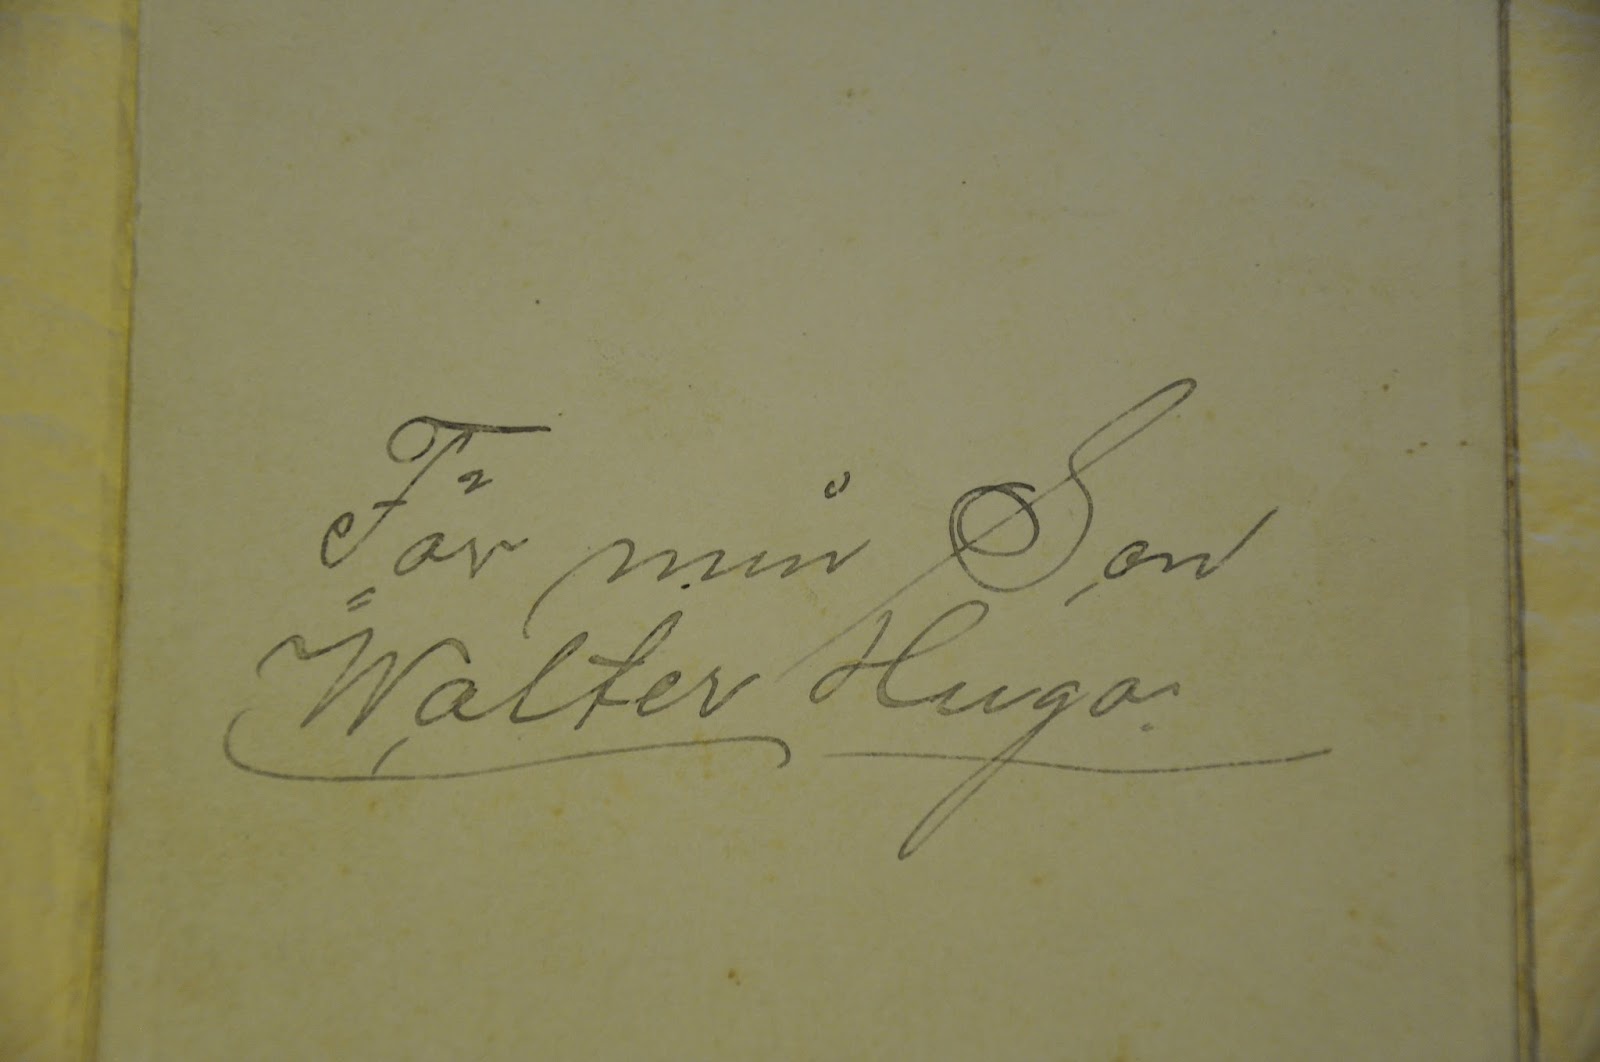 För min Son
Walter Hugo.